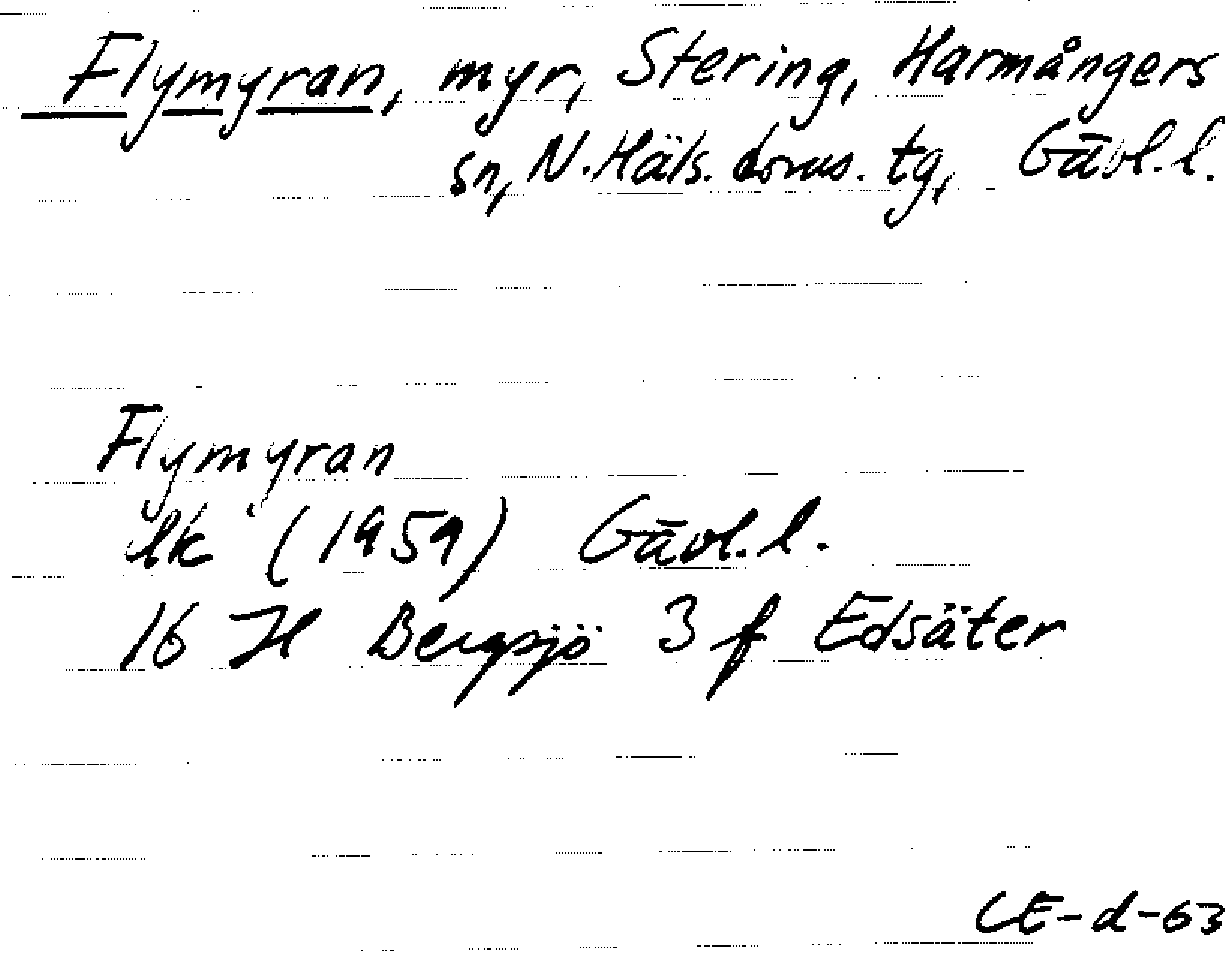 Flymyran, myr, Stering, Harmångers
sn, N. Häls. doms. tg, Gävl. l.
Flymyran
(1959) Gävl. l.
16 H Bergsjö 3 f Edsäter
CE-d-63